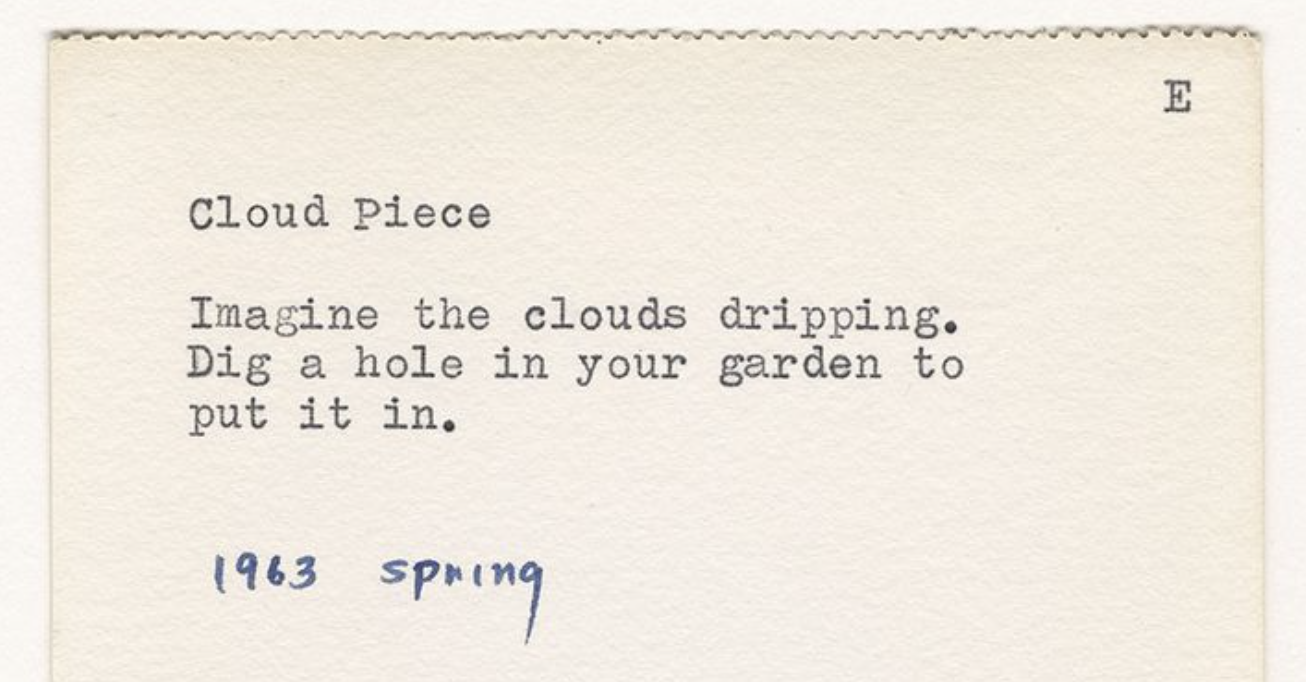 E
Cloud Piece
Imagine the clouds dripping.
Dig a hole in your garden to
put it in.
1963 spring